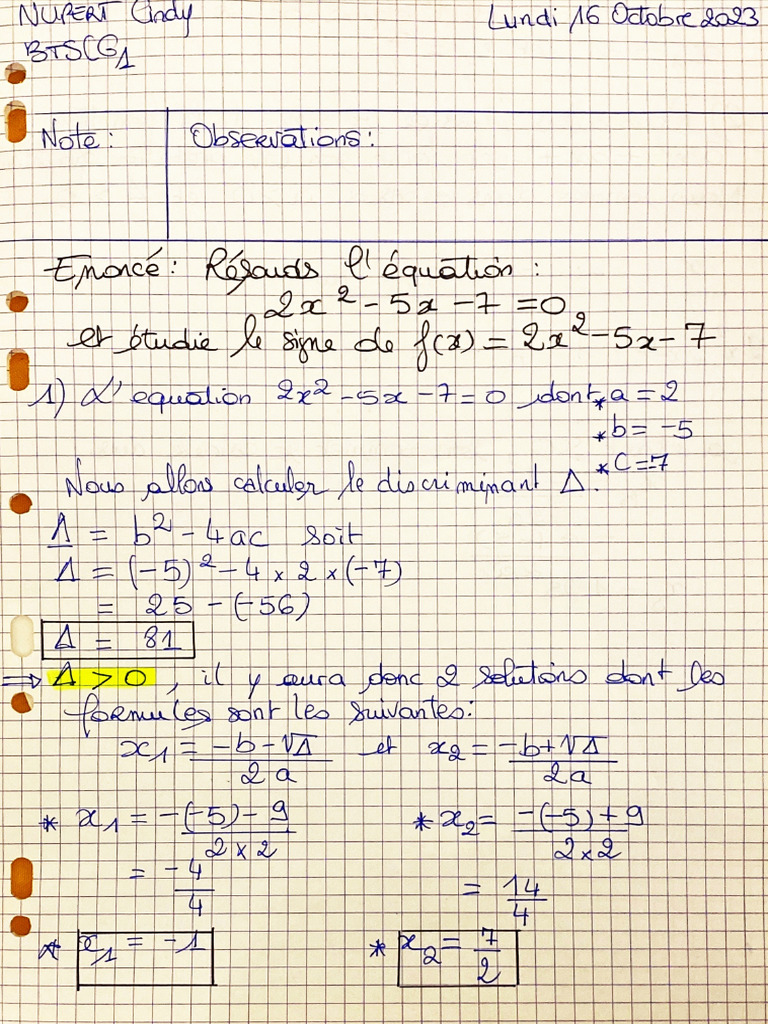 NUPERT Cindy
Lundi 16 Octobre 2023
BTSCG1
Note :
Observations :
Enoncé : Résouds l'équation :
2x² - 5x - 7 = 0
et étudie le signe de f(x) = 2x² - 5x - 7
1) L'equation 2x² - 5x - 7 = 0 dont * a = 2
* b = -5
* C = -7
Nous allons calculer le discriminant Δ.
Δ = b² - 4ac soit
Δ = (-5)² - 4 × 2 × (-7)
= 25 - (-56)
Δ = 81
⇒ Δ > 0, il y aura donc 2 solutions dont les
formules sont les suivantes :
x₁ = (-b - √Δ) / 2a et x₂ = (-b + √Δ) / 2a
* x₁ = (-(-5) - 9) / (2 × 2) * x₂ = (-(-5) + 9) / (2 × 2)
= -4/4 = 14/4
* x₁ = -1 * x₂ = 7/2